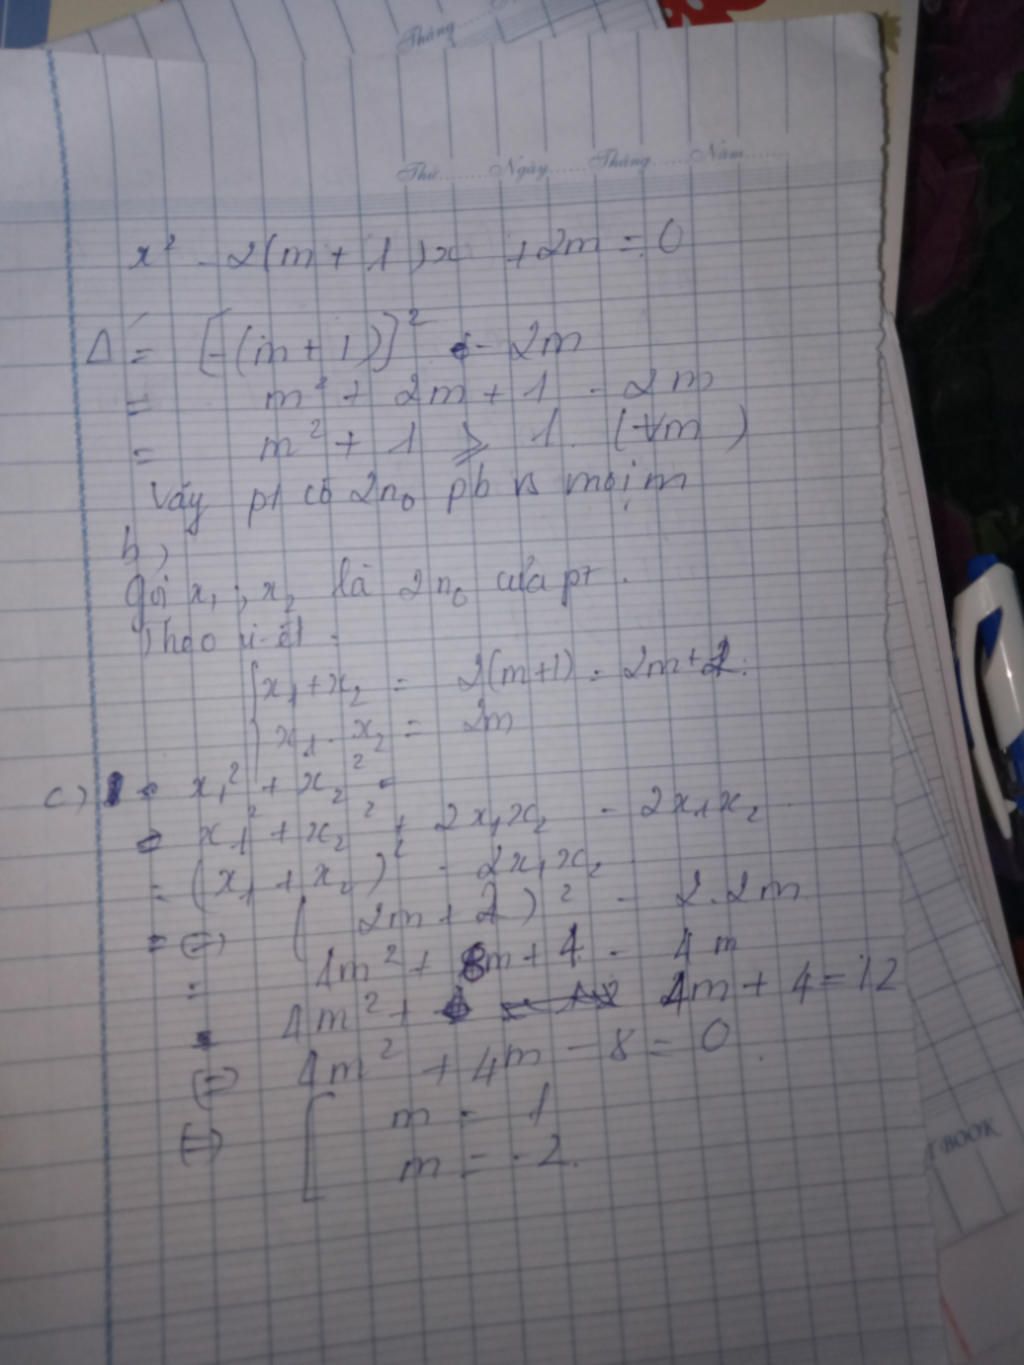 Tháng
Thứ......Ngày......Tháng......Năm......
x² - 2(m + 1)x + 2m = 0
Δ' = [-(m + 1)]² - 2m
= m² + 2m + 1 - 2m
= m² + 1 ≥ 1. (∀m)
Vậy pt có 2n₀ pb vs mọi m
b)
Gọi x₁ ; x₂ là 2n₀ của pt.
Theo vi-ét :
{ x₁ + x₂ = 2(m+1) = 2m + 2.
x₁ . x₂ = 2m
c) x₁² + x₂²
= x₁² + x₂² + 2x₁x₂ - 2x₁x₂
= (x₁ + x₂)² - 2x₁x₂
= (=) (2m + 2)² - 2.2m
= 4m² + 8m + 4 - 4m
4m² + 4m + 4 = 12
(=) 4m² + 4m - 8 = 0.
(=) [ m = 1
m = -2.
BOOK